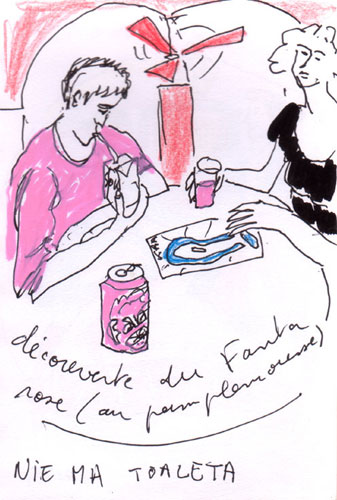 découverte du Fanta
rose (au pamplemousse)
NIE MA TOALETA